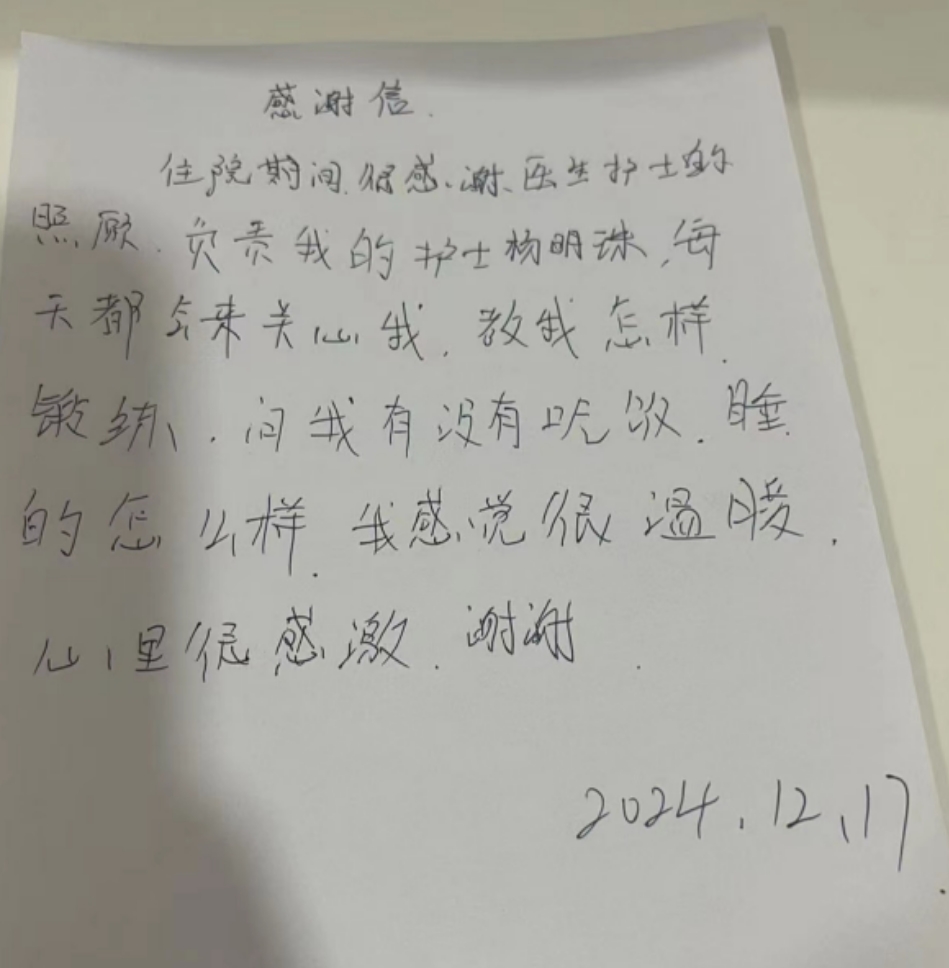 感谢信.
住院期间.很感谢.医生护士的
照顾.负责我的护士杨明珠.每
天都会来关心我.教我怎样.
锻练.问我有没有吃饭.睡
的怎么样.我感觉很温暖.
心里很感激.谢谢.
2024.12.17